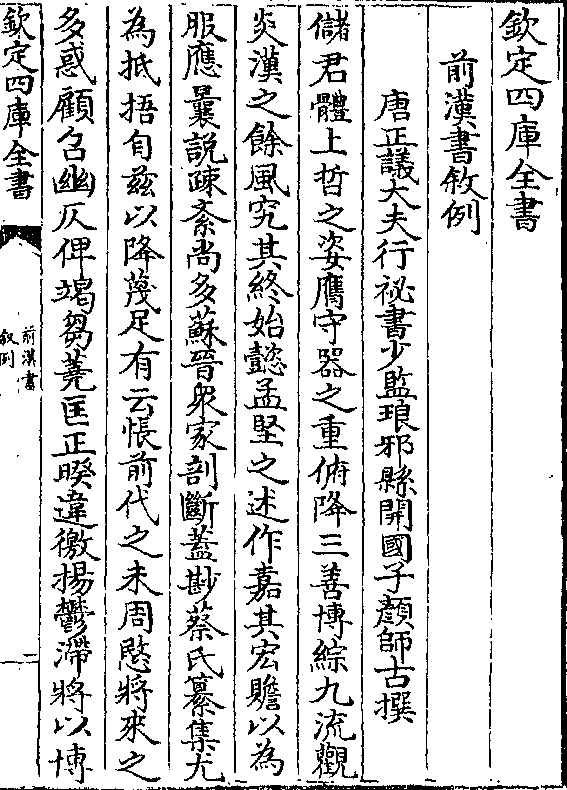 欽定四庫全書
前漢書敘例
唐正議大夫行祕書少監琅邪縣開國子顏師古撰
儲君體上哲之姿膺守器之重俯降三善博綜九流觀
炎漢之餘風究其終始懿孟堅之述作嘉其宏贍以為
服應曩說疎紊尚多蘇晉衆家剖斷蓋尠蔡氏纂集尤
為抵捂自兹以降蔑足有云悵前代之未周愍將來之
多惑顧召幽仄俾竭芻蕘匡正睽違激揚鬱滯將以博
欽定四庫全書
前漢書
敘例
一